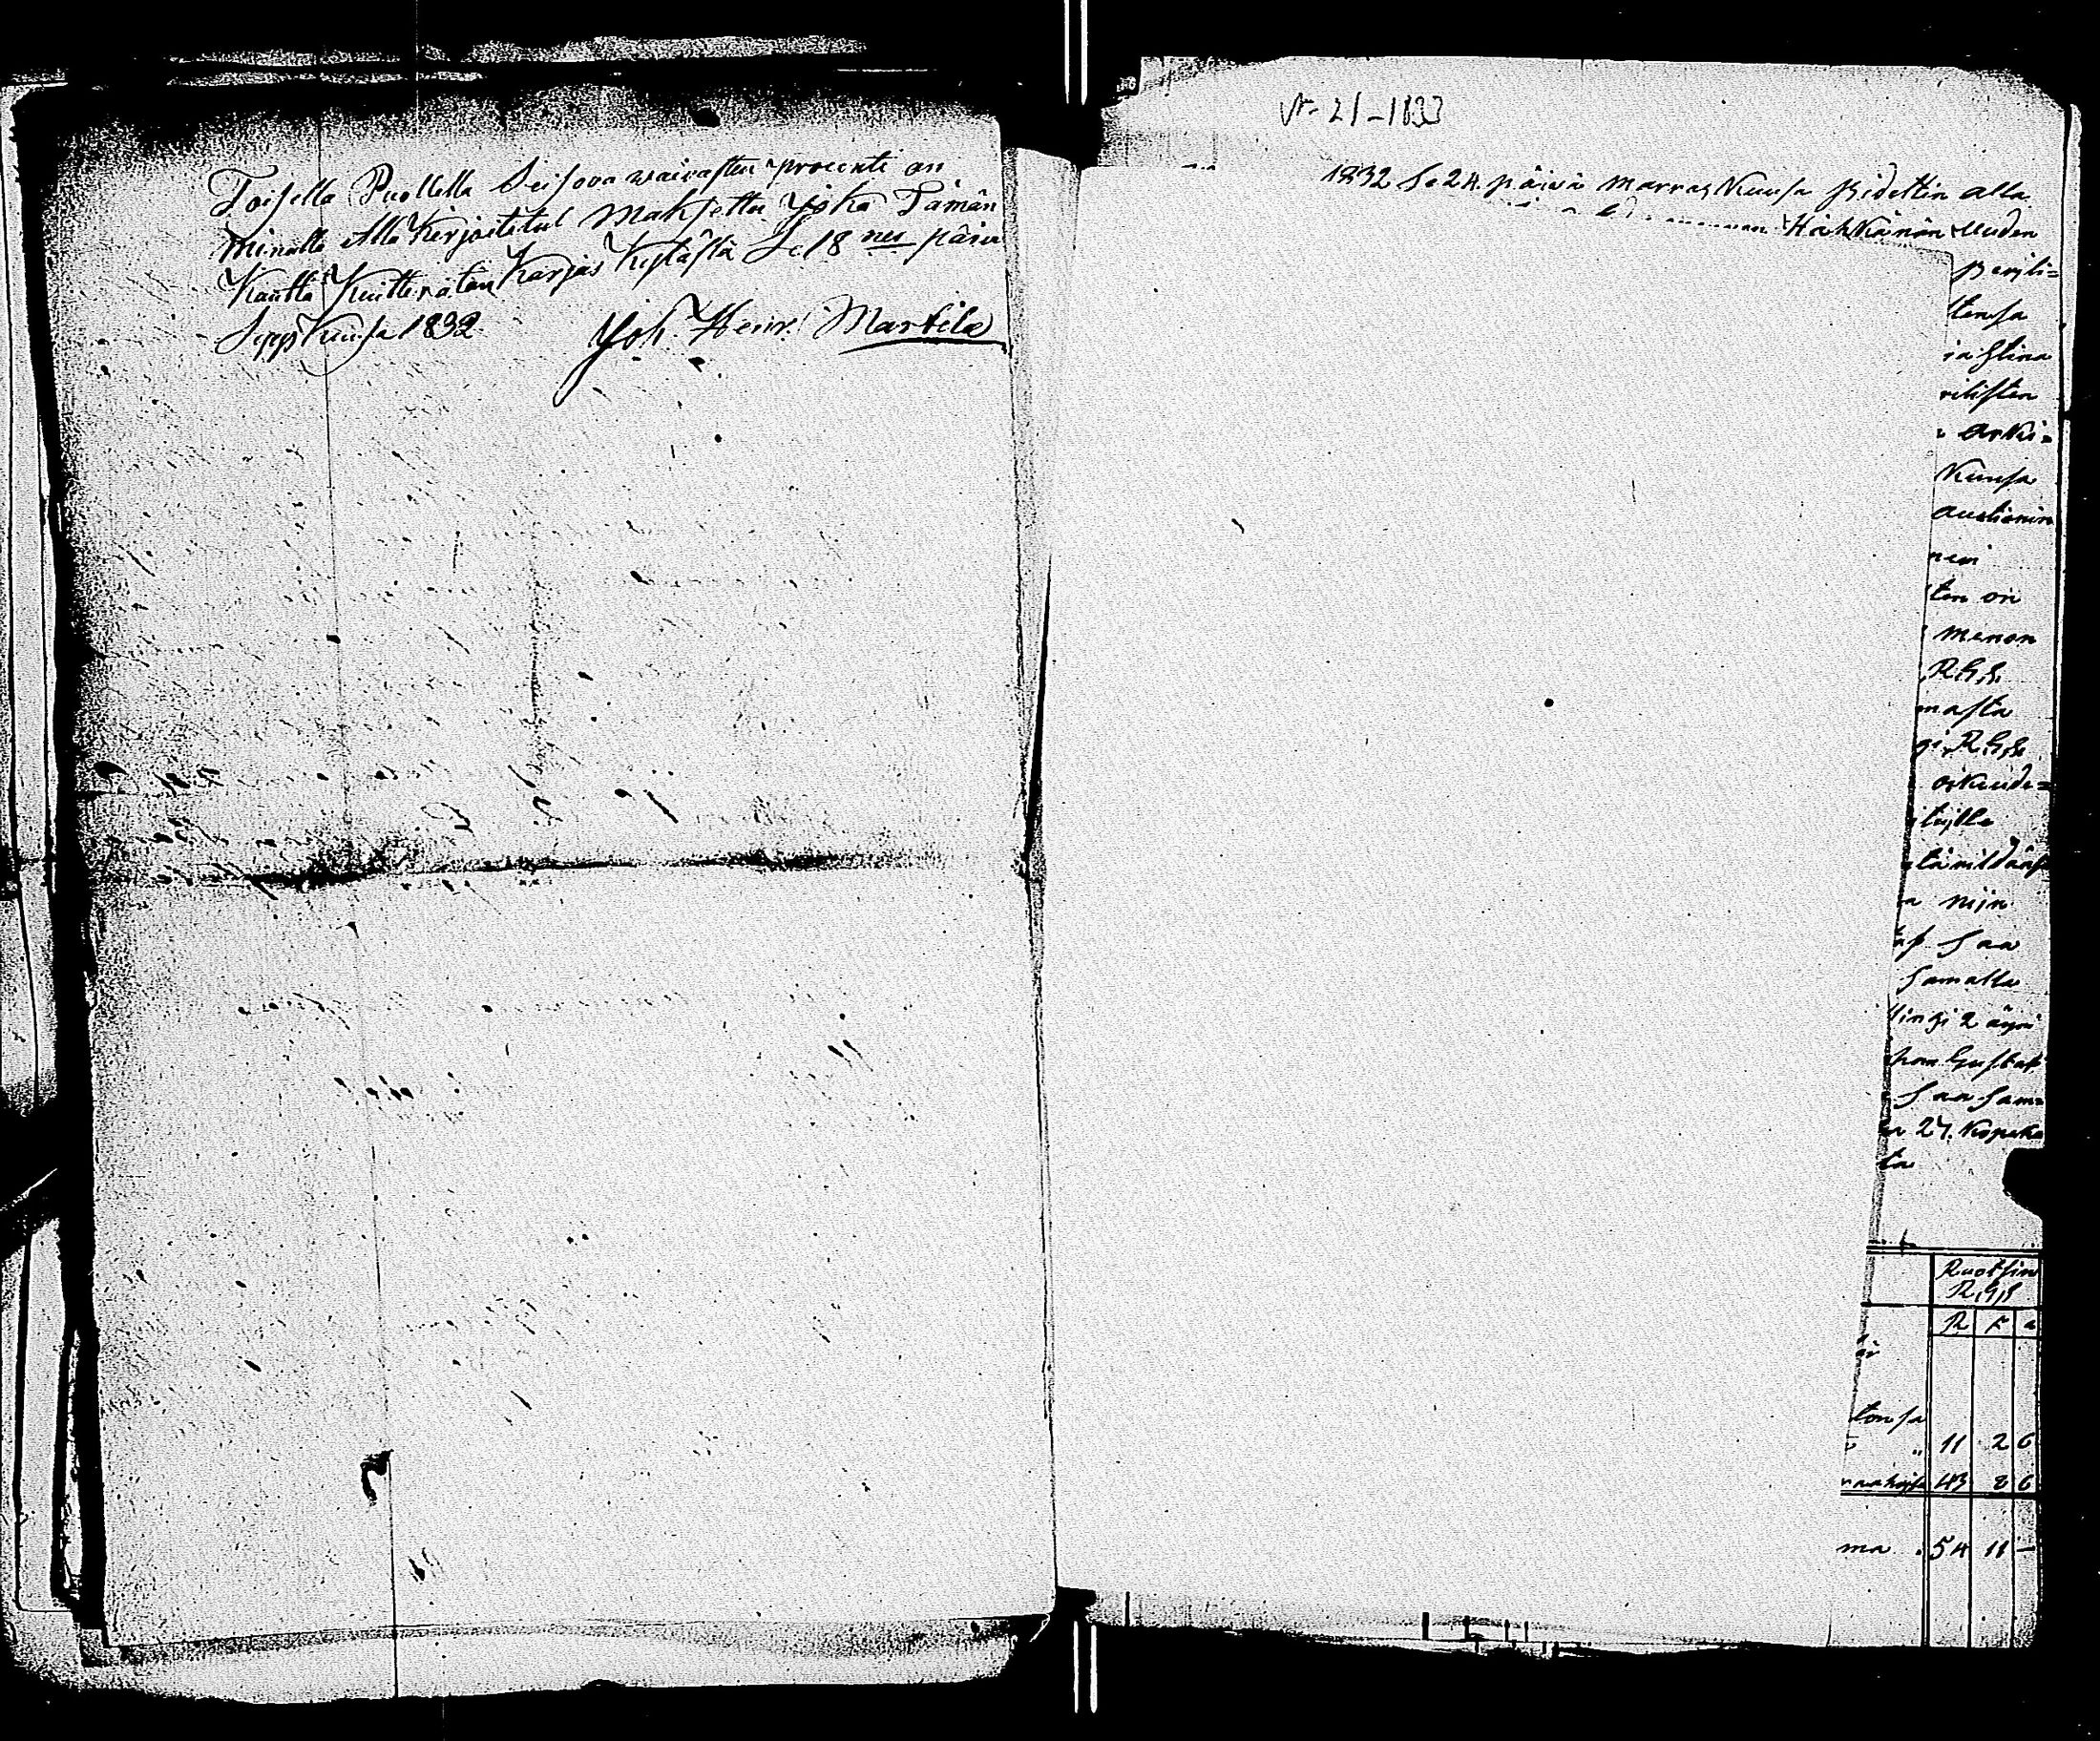 Toisella Puollella Seisova waivasten procenti on
Minulle Alla Kirjoitetul Maksettu Joka Tämän
Kautta Kuitterätän Karjas Kylästä Se 18 nes päivä
Syys Kuusa 1832
Joh. Henr. Martila
Nr 21-1833
1832 Se 24. päivä Marras Kuusa Pidettin alla
Häkkänän Uuden
Perili=
tensa
ia Stina
rilisten
Arki=
Kuusa
auctionin
nen
ten on
menon
R.G.S.
masta
gi, R.G.S.
oikeude=
itäjlle
a nijn
Saa
Samalla
lingi 2 äyri
hon Gustaf
Saa Sam=
27. Kopeka
ta
Ruotsin
R.G.S
R
tonsa
" 11 2 6
43 8 6
ma . 54 11 —